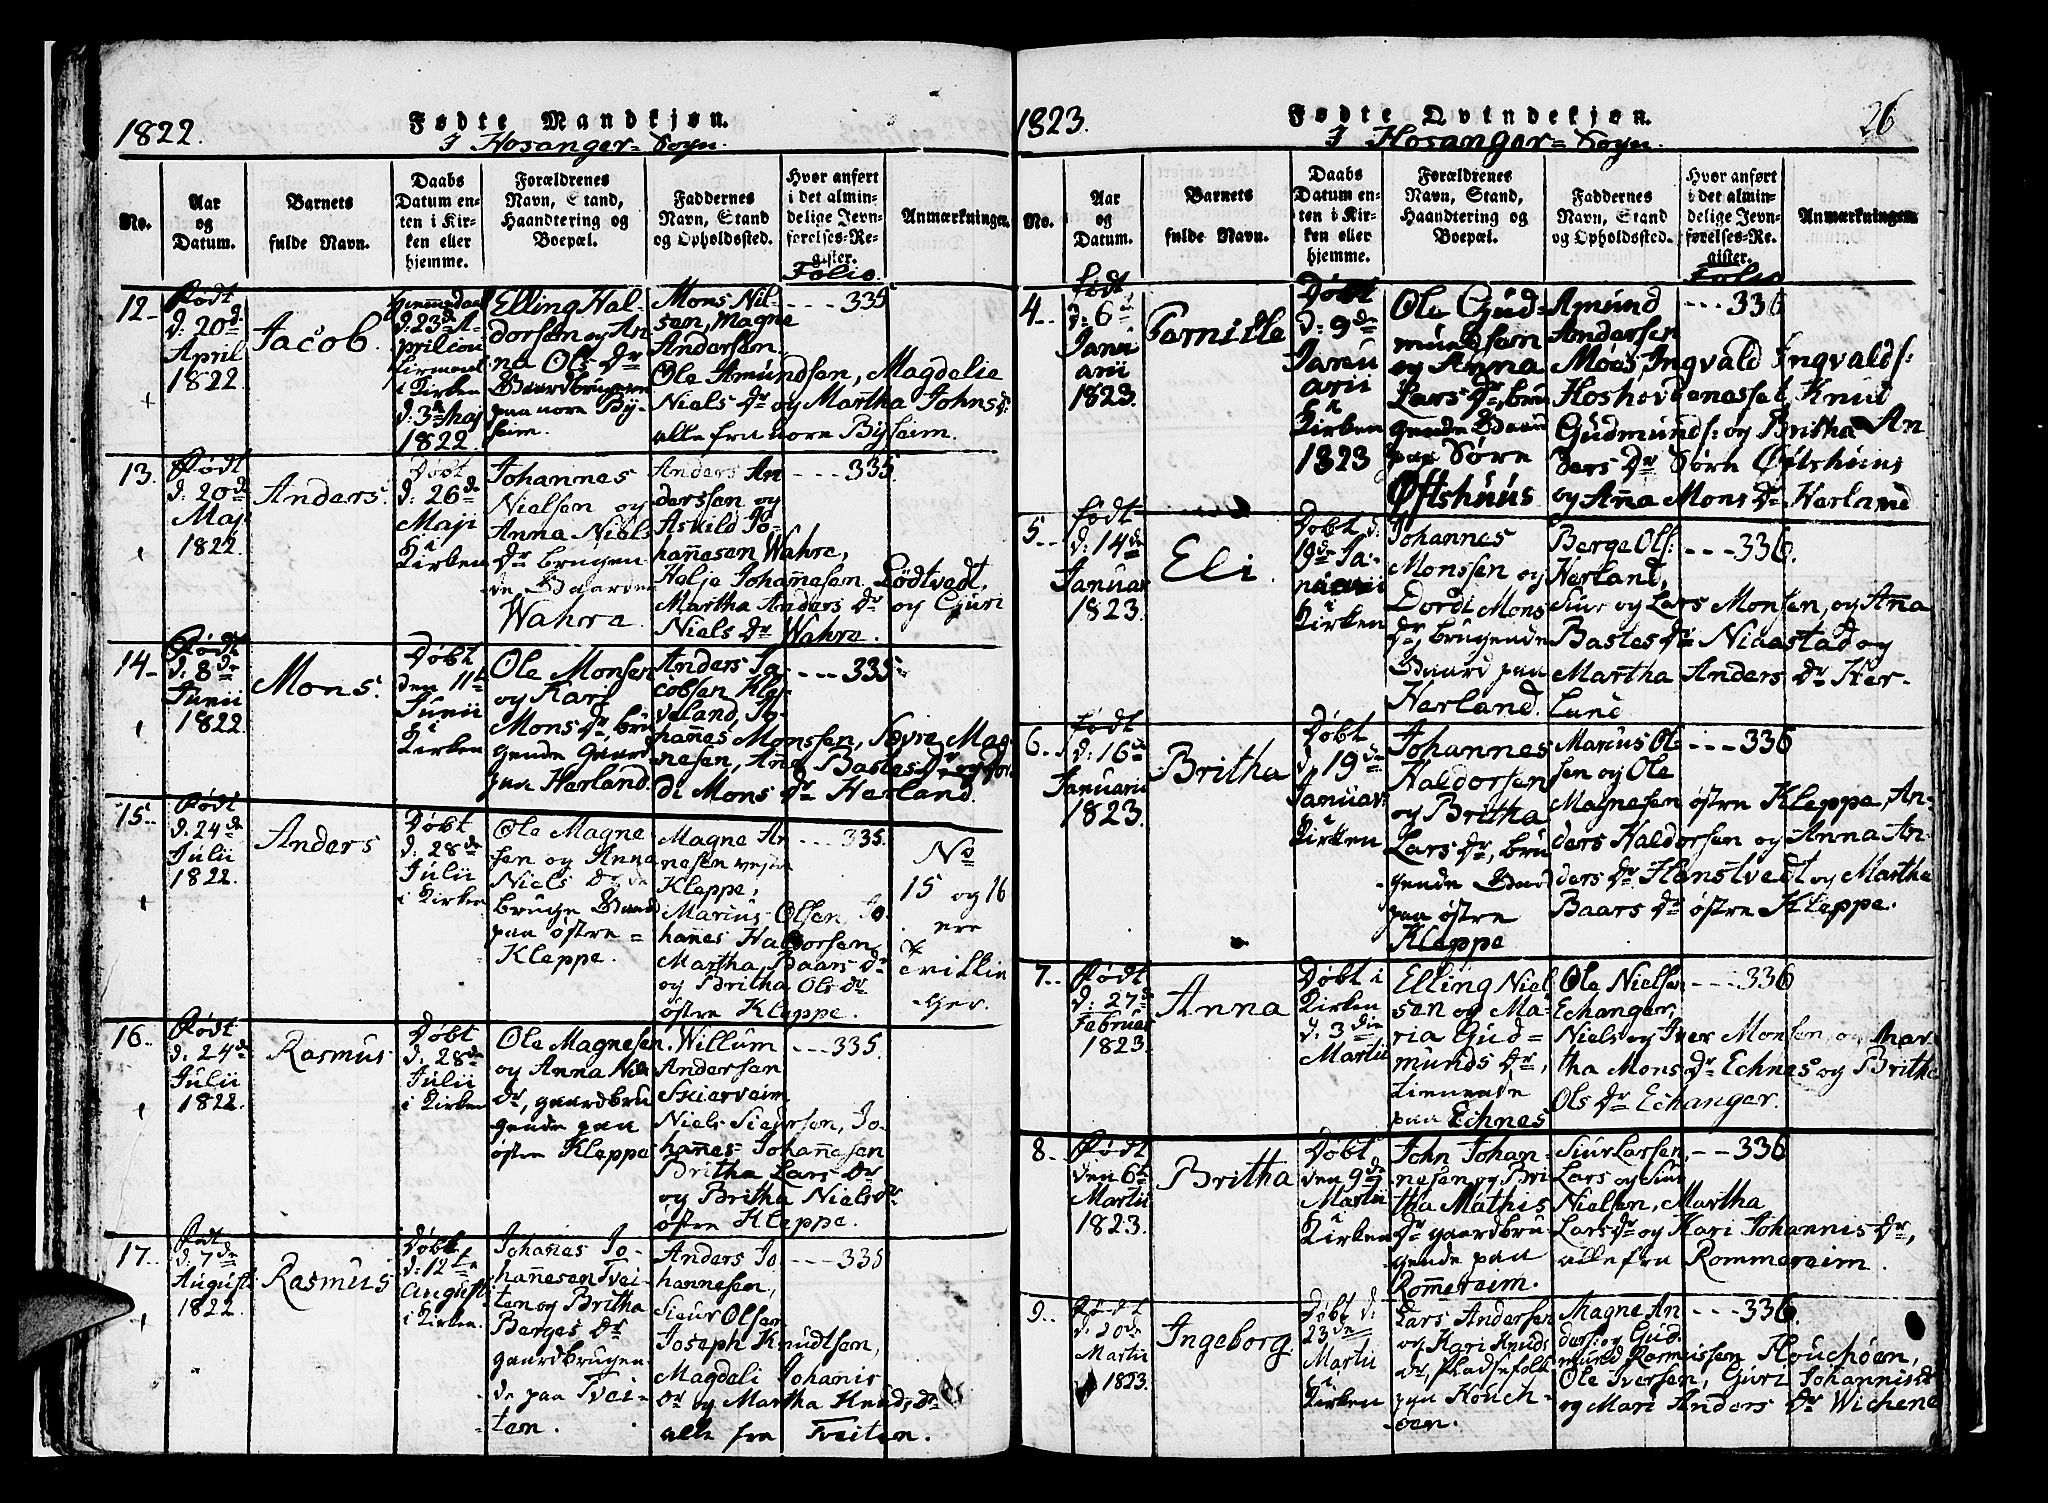 1822.
Fødte Mandkjøn.
I Hosanger=Sogn.
No.
Aar og Datum.
Barnets fulde Navn.
Daabs Datum enten i Kirken eller hjemme.
Forældrenes Navn, Stand, Haandtering og Boepæl.
Faddernes Navn, Stand og Opholdssted.
Hvor anført i det almindelige Jevnførelses-Register.
Folio.
Anmærkninger.
12
Født
d: 20de
April
1822.
Jacob.
d. 23de A-
pril con
firmeret
i Kirken
d. 3de Maj
1822.
Elling Hal-
dorsen og An-
na Ols Dr
Gaardbrugere
paa nore By-
seim.
Mons Nil-
sen, Magne
Andersen.
Ole Amundsen, Magdelie
Niels Dr og Martha Johns Dr
alle fra nore Byseim.
---335
13.
Født
d: 20de
Maji
1822.
Anders.
Døbt
d: 26de
Maji
i
Kirken
Johannes
Nielsen og
Anna Niels
Dr brugen
de Gaarden
Wahre.
Anders An
derssen og
Askild Jo-
hañesen Wahre,
Helje Johañesen Lødtvedt,
Martha Anders Dr og Guri
Niels Dr Wahre.
---335.
14-
Født
d. 8de
Junii
1822.
Mons.
Døbt
den 11te
Junii
i
Kirken
Ole Monsen
og Kari
Mons Dr, bru
gende Gaard
paa Herland.
Anders Ja-
cobsen Kle-
veland, Jo-
hañes Monssen, Sevre Mag-
nesen, Ana Bastes Dr og Dor
di Mons Dr Herland.
---335
15..
Født
d. 24de
Julii
1822.
Anders
Døbt
d: 28de
Julii
i Kirken
Ole Magne
sen og Anna
Niels Dr
bruge Gaard
paa østre =
Kleppe.
Magne An
nesen vestre
Kleppe,
Marius Olsen Jo
hañes Haldorsen,
Martha Baars Dr
og Britha Ols Dr
østre Kleppe.
---335.
No
15 og 16
ere
Tvillin
ger.
16..
Født
d. 24de
Julii
1822.
Rasmus
Døbt
d: 28de
Julii
i Kirken
Ole Magnesen
og Anna Nils
Dr, gaardbru
gende paa
østre Kleppe
Willum
Andersen
Skierveim
Niels Siursen, Jo-
hañes Johañesen
Britha Lars Dr
og Britha Niels Dr
østre Kleppe.
---335.
17..
Født
d: 7de
Augusti
1822.
Rasmus
Døbt
d: 12te
Augusti
i Kirken.
Johañes Jo-
hañesen Tvei-
ten og Britha
Berges Dr
gaardbrugen-
de paa Tvei-
ten.
Anders Jo
hannesen,
Sieur Olsen
Joseph Knudtsen,
Magdeli Johanis
Dr og Martha Knuds Dr
alle fra Tveiten.
---335
1823.
Fødte Qvindekjøn.
I Hosanger=Sogn.
26
No.
Aar og Datum.
Barnets fulde Navn.
Daabs Datum enten i Kirken eller hjemme.
Forældrenes Navn, Stand, Haandtering og Boepæl.
Faddernes Navn, Stand og Opholdssted.
Hvor anført i det almindelige Jevnførelses-Register.
Folio
Anmærkninger.
4..
Født
d: 6te
Janu
arii
1823.
Pernille
Døbt
d: 9de
Janu
arii
i
Kirken
1823
Ole Gud=
mundsen
og Anna
Lars Dr, bru
gende Gaard
paa Søre
Øftshuus
Amund
Andersen
Moes, Ingvald Ingvalds:
Hoshovdenesset, Knud
Gudmunds: og Britha An
ders Dr Søre Øftshuus
og Aña Mons Dr Herland
---336
5..
Født
d: 14de
Januar
1823.
Eli.
Døbt d:
19de Ja-
nuarii
i
Kirken
Johannes
Monssen og
Dordi Mons
Dr brugende
Gaard paa
Herland.
Berge Ols:
Herland,
Siur og Lars Monsen, og Aña
Bastes Dr Niaastad og
Martha Anders Dr Her-
land
---336.
6..
Født
d: 16de
Januarii
1823.
Britha
Døbt
d. 19de
Januari
i
Kirken
Johannes
Haldorsen
og Britha
Lars Dr, bru
gende Gaard
paa østre
Kleppe
Marius Ol-
sen og Ole
Magnesen østre Kleppe, An-
ders Haldorsen og Anna An-
ders Dr Hanstvedt og Martha
Baars Dr østre Kleppe.
---336
7..
Født
d: 27de
Februar
1823.
Anna
Døbt i
Kirken
d. 3die
Martii
Elling Niel
sen og Ma-
ria Gud=
munds Dr,
tienende
paa Echnes
Ole Nielsen
Echanger,
Niels og Iver Monsen, og Mar
tha Mons Dr Echnes og Britha
Ols Dr Echanger.
---336
8..
Født
den 6te
Martii
1823.
Britha
Døbt
den 9de
Martii
i
Kirken
John Johan-
nesen og Bri
tha Mathis
Dr gaardbru
gende paa
Rom̃ereim.
Siur Larsen,
Lars og Siur
Nielsen, Martha
Lars Dr og Kari Johannis Dr,
alle fra Rommereim.
---336
9..
Født
d. 20de
Martii
1823.
Ingeborg
Døbt d:
23de
Martii
i
Kirken
Lars Andersen
og Kari Knuds
Dr, Pladsefolk
paa Houch-
øen.
Magne An
ders: og Gud
mund Rasmussen Houchøen,
Ole Iversen, Guri Johannis Dr
og Mari Anders Dr Wichene
---336.